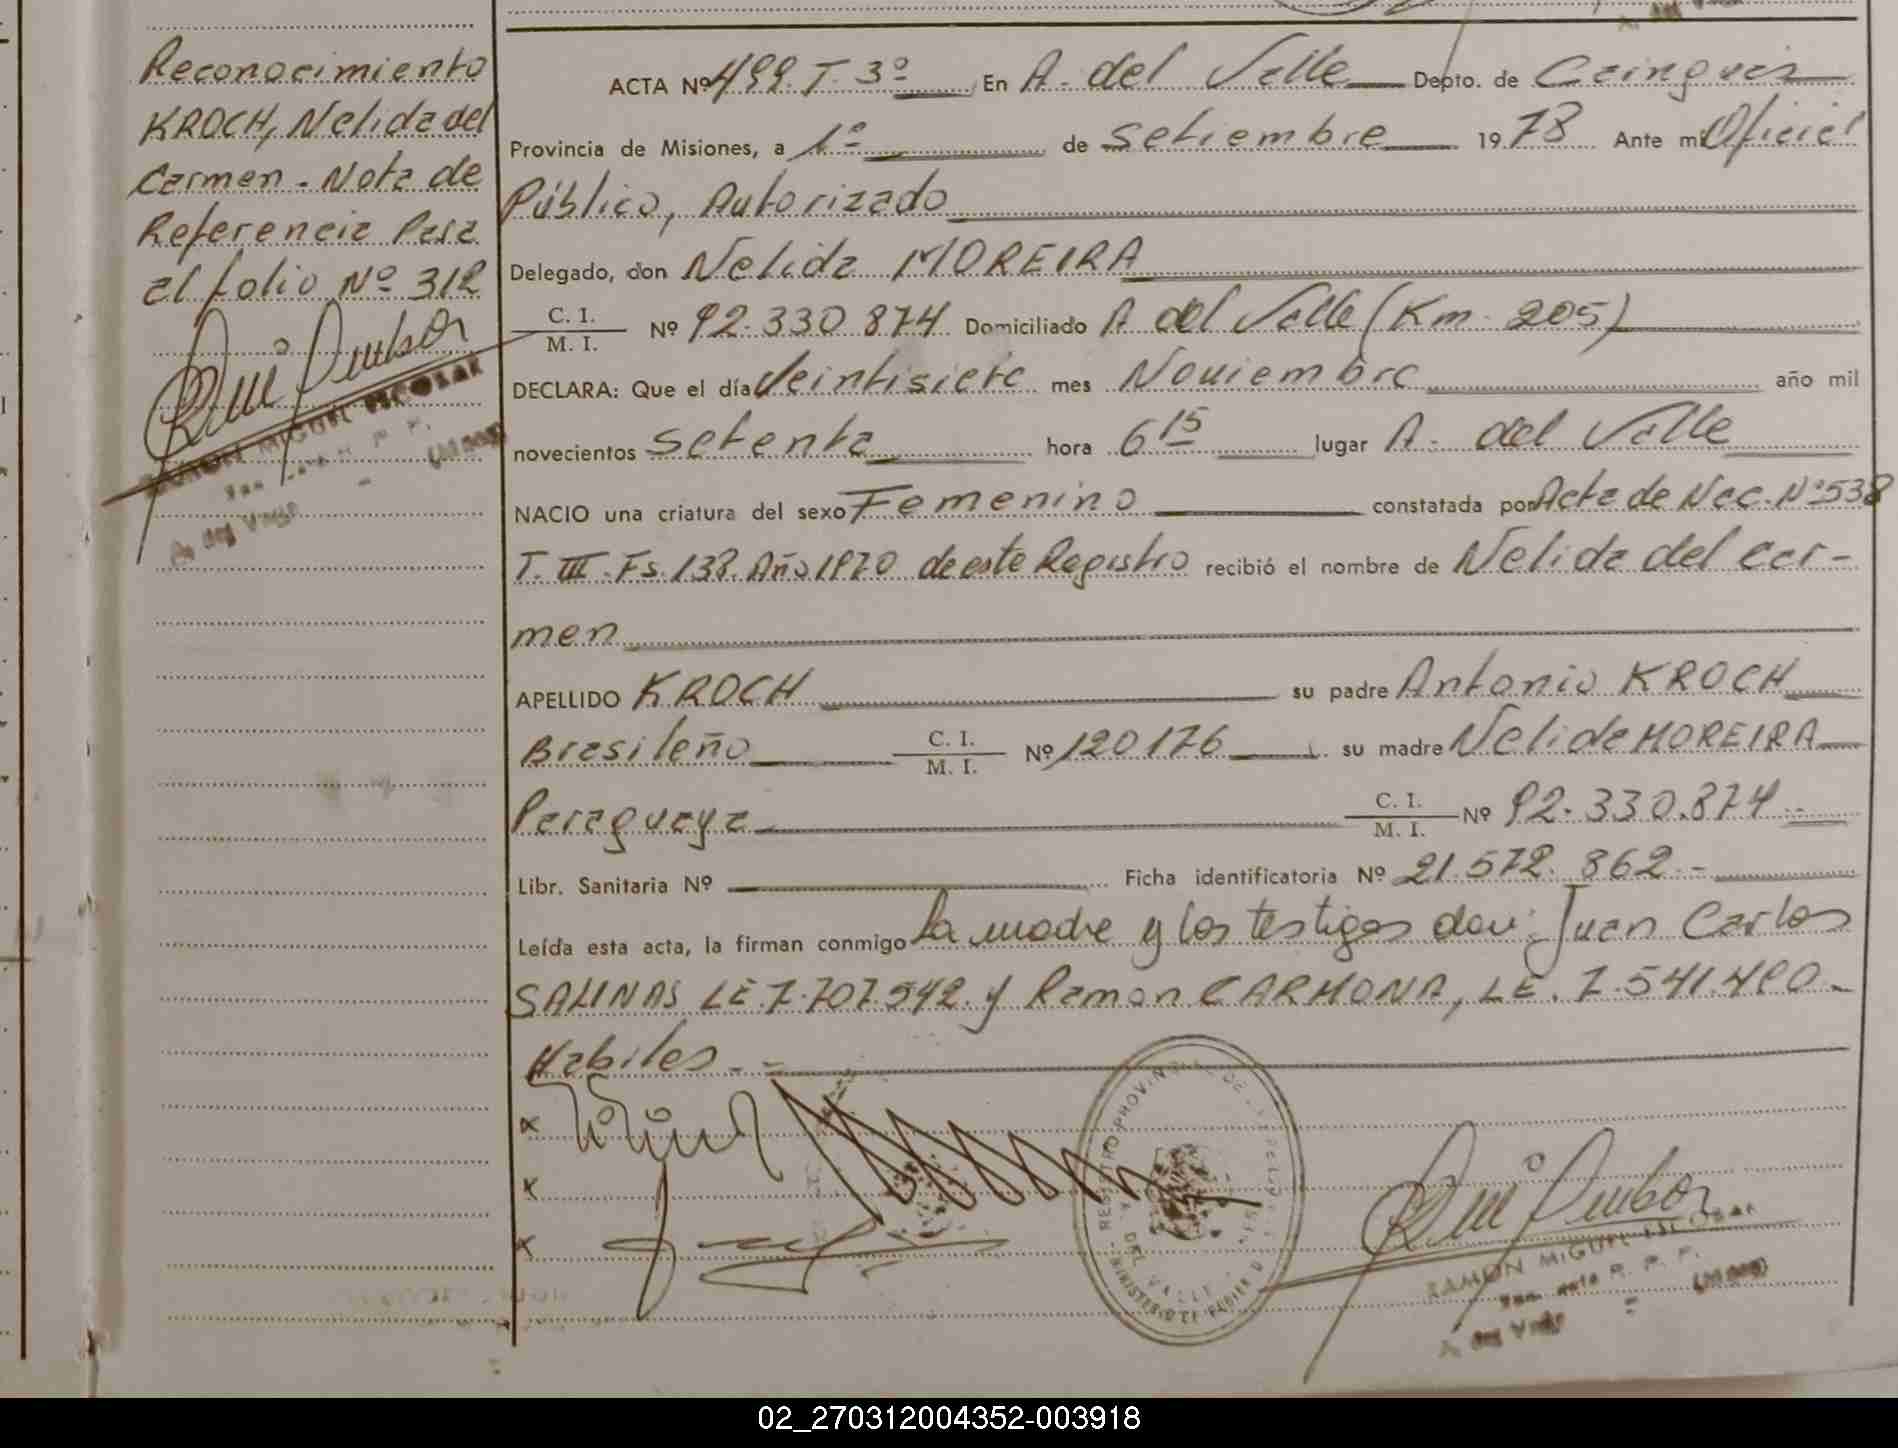 Reconocimiento
KROCH, Nelida del
Carmen - Nota de
Referencia Pasa
al folio Nº 312
RAMON MIGUEL ESCOBAR
A. del Valle
ACTA Nº 499. T. 3º En A. del Valle Depto. de Cainguás
Provincia de Misiones, a 1º de Setiembre 1978 Ante mi Oficial
Público, Autorizado
Delegado, don Nelida MOREIRA
C. I.
M. I. Nº 92.330.874 Domiciliado A del Valle (Km. 205)
DECLARA: Que el día Veintisiete mes Noviembre año mil
novecientos Setenta hora 6 15 lugar A. del Valle
NACIO una criatura del sexo Femenino constatada por Acta de Nac. Nº 538
T. III. Fs. 138. Año 1970 de este Registro recibió el nombre de Nelida del Car-
men
APELLIDO KROCH su padre Antonio KROCH
Brasileño C. I.
M. I. Nº 120176 su madre Nelida MOREIRA
Paraguaya C. I.
M. I. Nº 92.330.874.-
Libr. Sanitaria Nº Ficha identificatoria Nº 21.572.862.-
Leída esta acta, la firman conmigo La madre y los testigos don: Juan Carlos
SALINAS LE. 7.707.542. y Ramon CARMONA, LE. 7.541.490.-
Habiles.-
x
x
x
REGISTRO PROVINCIAL DE LAS PERSONAS
A. DEL VALLE
MINISTERIO DE GOBIERNO
RAMON MIGUEL ESCOBAR
A. del Valle
02_270312004352-003918